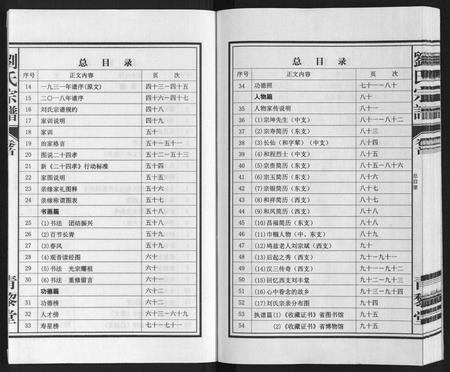 劉氏宗譜
卷首
青黎堂
总目录
序号 正文内容 页次
14 一九三一年谱序(原文) 四十三－四十五
15 二〇一八年谱序 四十六－四十七
16 刘氏宗谱规约 四十八
17 家训说明 四十九
18 家训 五十
19 治家格言 五十－五十一
20 图说二十四孝 五十二－五十三
21 新《二十四孝》行动标准 五十四
22 家图说明 五十五
23 亲缘家礼图释 五十六
24 亲缘称谓图表 五十七
书画篇 五十八
25 (1)书法 团结振兴 五十八
26 (2)百节长青 五十九
27 (3)春风 五十九
28 (4)观音读经图 六十
29 (5)书法 光宗耀祖 六十
30 (6)书法 重修留言 六十一
功德篇 六十二
31 功德榜 六十二
32 人才榜 六十三－六十九
33 寿星榜 七十－七十一
总目录
序号 正文内容 页次
34 功德照 七十一－八十
人物篇 八十
35 人物家传说明 八十一
36 (1)宗坤先生（中支） 八十一－八十二
37 (2)宗寿简历（东支） 八十三
38 (3)长仙（和字辈）（中支） 八十四
39 (4)和程烈士（中支） 八十五
40 (5)宗贵简历（东支） 八十五－八十六
41 (6)宗玉简历（东支） 八十六
42 (7)宗银简历（东支） 八十七
43 (8)和祥简历（西支） 八十七
44 (9)和风简历（西支） 八十八
45 (10)昌福简历（东支） 八十八
46 (11)巾帼人物（中、东支） 八十九
47 (12)鸠兹老人刘宗斌（西支） 九十
48 (13)后起之秀（西支） 九十一－九十一
49 (14)汉三传奇（西支） 九十一－九十二
50 (15)回忆西支刘丰堂 九十二－九十三
51 (16)心中眷念的故乡 九十三－九十四
52 (17)刘氏宗亲分布图 九十四
53 执谱篇(1)《收藏证书》省图书馆 九十五
54 (2)《收藏证书》省博物馆 九十五
劉氏宗譜
卷首
总目录
青黎堂